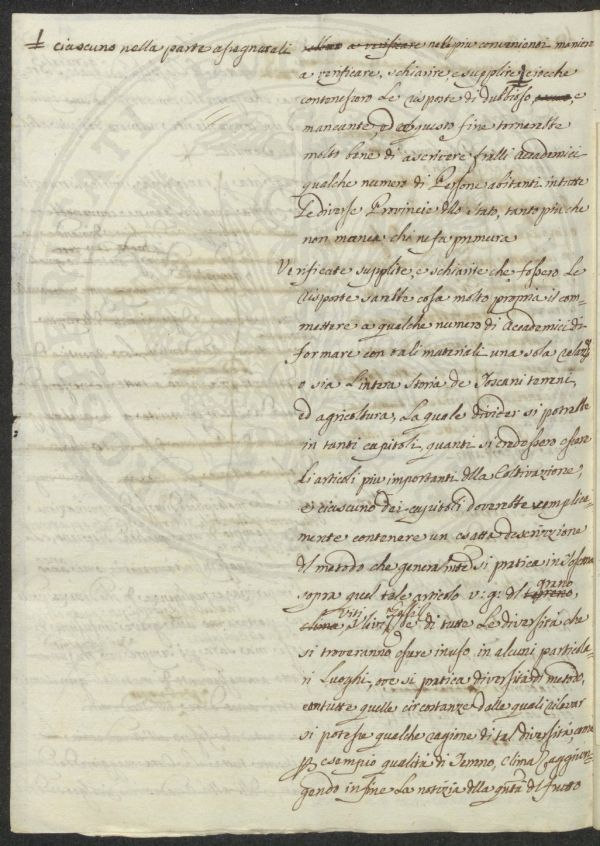 ciascuno nella parte assegnatali
a verificare nelle più convenienti maniere
a verificare, schiarire e supplire ciò che
contenessero Le risposte di dubbioso, e
mancante ed a questo fine tornerebbe
molto bene di ascrivere fralli Academici
qualche numero di Persone abitanti in tutte
Le diverse Provincie dllo Stato, tanto più che
non manca chi ne fa premura
Verificate supplite, e schiarite che fossero Le
risposte sarebbe cosa molto propria il com-
mettere a qualche numero di Academici di
formare con tali materiali una sola relaz.
o sia L'intera Storia de Toscani terreni,
ed agricoltura, La quale divider si potrebbe
in tanti capitoli, quanti si credessero essere
li articoli più importanti dlla Coltivazione,
e ciascuno dei capitoli doverebbe
mente contenere un esatta descrizzione
dl metodo che general mte si pratica in Toscana
sopra quel tale articolo v: g: dl grano
Viti, Ulivi, e di tutte Le diversità che
si troveranno essere in uso in alcuni particola-
ri Luoghi, ove si pratica diversità di metodo,
con tutte quelle circostanze dalle quali rilevar
si potesse qualche ragione di tal diversità, come
p esempio qualità di Terreno, Clima, aggiun-
gendo in fine La notizia dlla qtà dl frutto